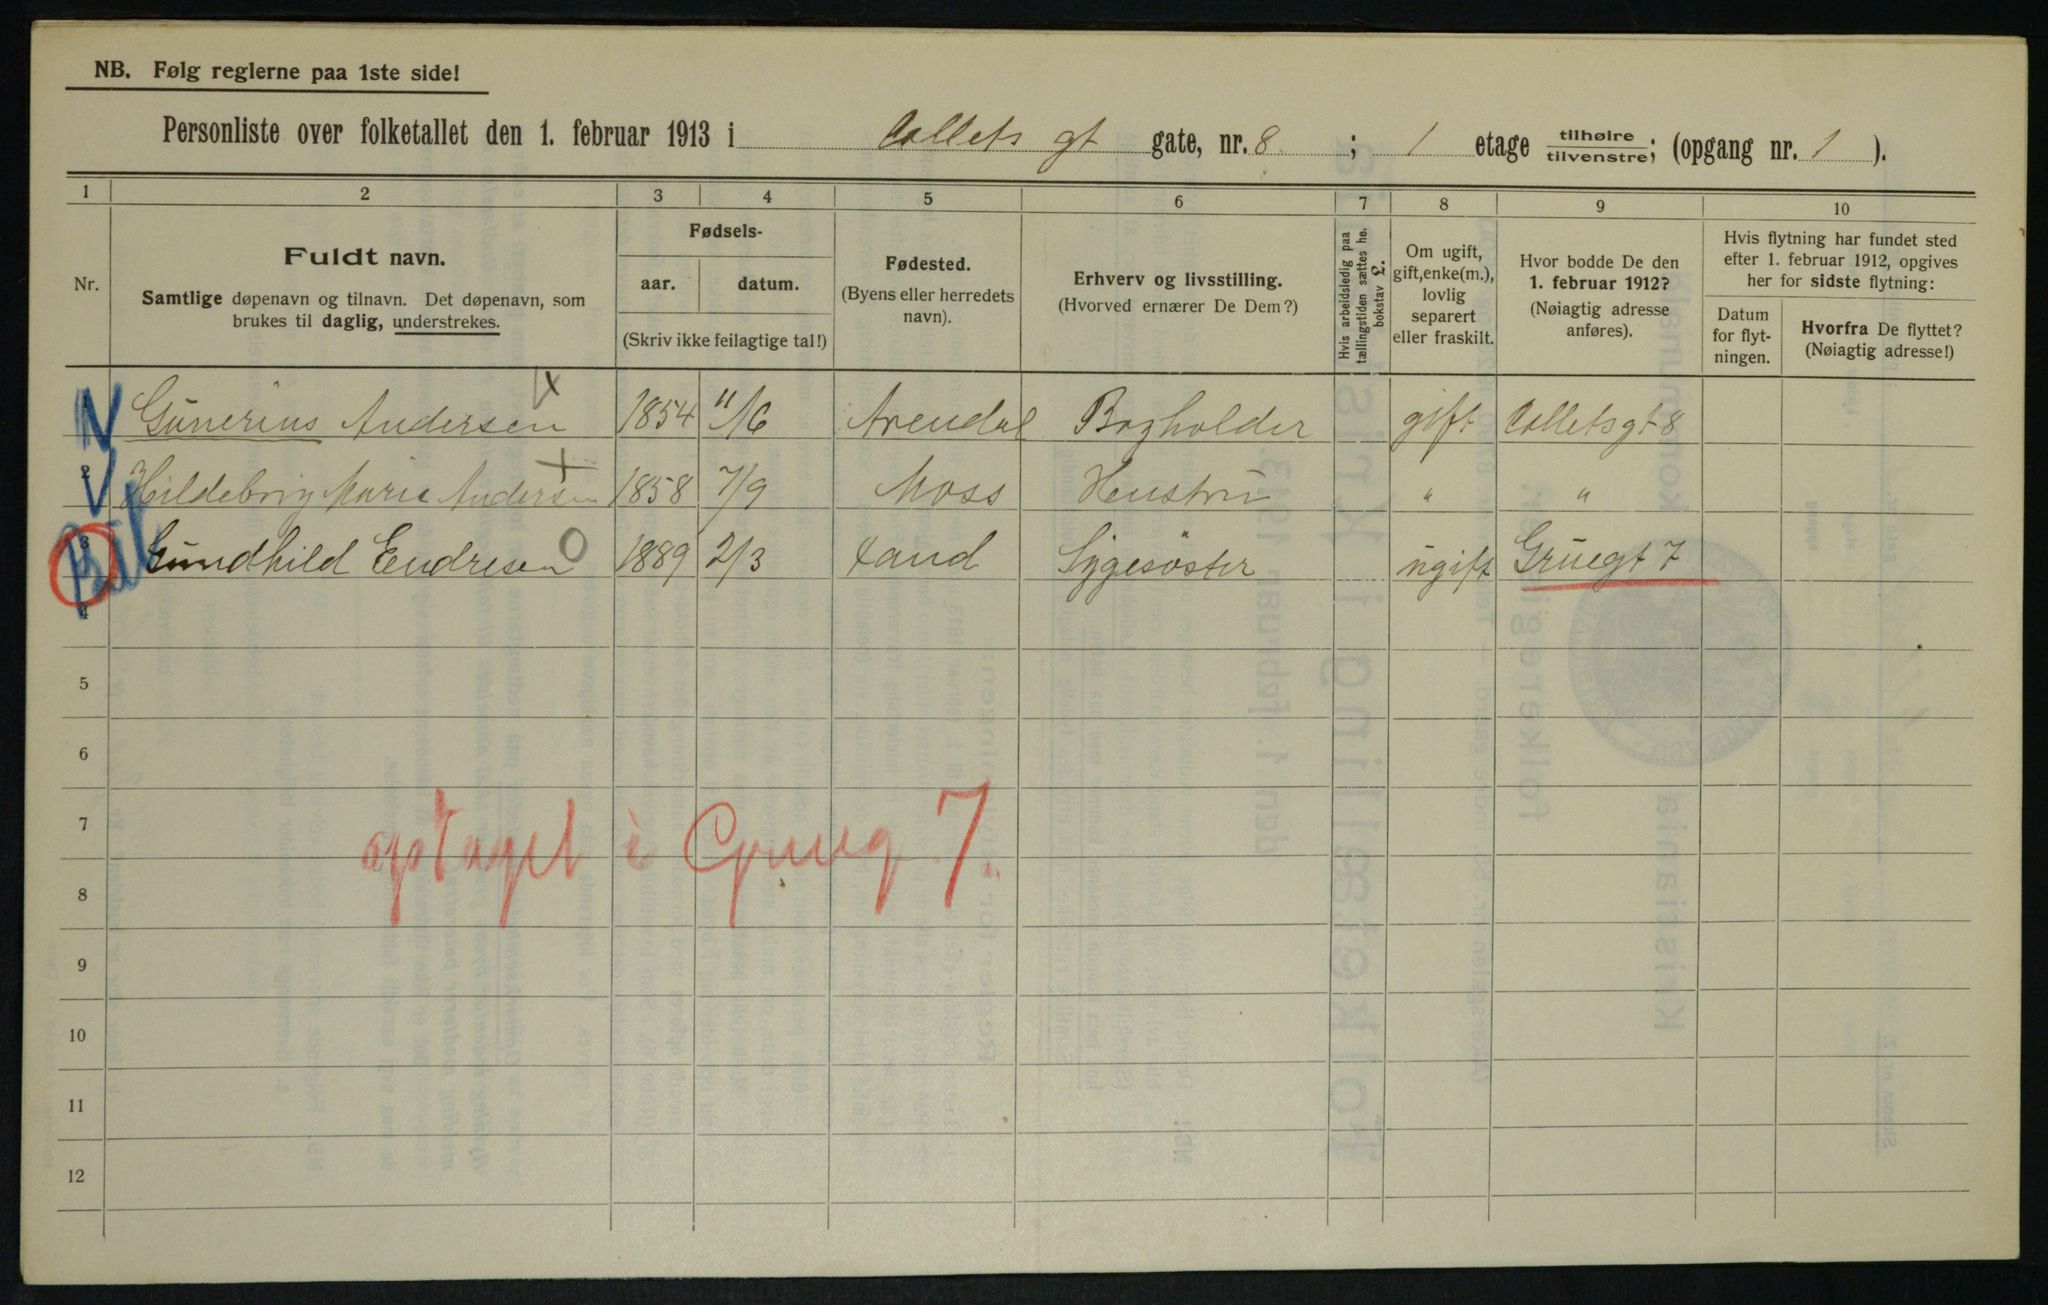 NB. Følg reglerne paa 1ste side!
Personliste over folketallet den 1. februar 1913 i Collets gt gate, nr. 8 ; 1 etage tilhøire/tilvenstre; (opgang nr. 1 ).
1 2 3 4 5 6 7 8 9 10
Nr.
Fuldt navn.
Samtlige døpenavn og tilnavn. Det døpenavn, som
brukes til daglig, understrekes.
Fødsels-
aar. datum.
(Skriv ikke feilagtige tal!)
Fødested.
(Byens eller herredets
navn).
Erhverv og livsstilling.
(Hvorved ernærer De Dem?)
Hvis arbeidsledig paa
tællingstiden sættes he.
bokstav L.
Om ugift,
gift, enke(m.),
lovlig
separert
eller fraskilt.
Hvor bodde De den
1. februar 1912?
(Nøiagtig adresse
anføres).
Hvis flytning har fundet sted
efter 1. februar 1912, opgives
her for sidste flytning:
Datum
for flyt-
ningen.
Hvorfra De flyttet?
(Nøiagtig adresse!)
Gunerius Andersen 1854 11/6 Arendal Bogholder gift Collets gt 8
2 Marie Andersen 1858 7/9 Moss Hustru " "
3 Gundhild Endresen 0 1889 2/3 Sygesøster ugift Gruegt 7
4
5
6
7
optaget i Grueg 7.
8
9
10
11
12